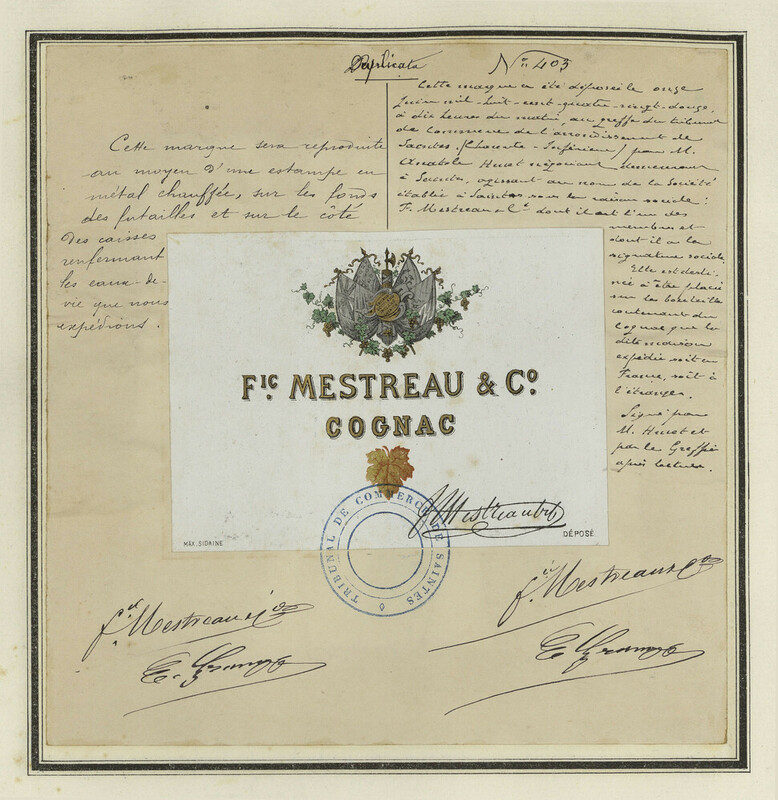 Duplicata
No. 403
Cette marque sera reproduite
au moyen d'une estampe en
métal chauffée, sur les fonds
des futailles et sur le côté
des caisses
renfermant
les eaux-de-
vie que nous
expédions.
Cette marque a été déposée le onze
Juin mil-huit-cent-quatre-vingt-douze,
à dix heures du matin, au greffe du tribunal
de Commerce de l'arrondissement de
Saintes, (Charente-Inférieure) par M.
Anatole Huet négociant demeurant
à Saintes, agissant au nom de la Société
établie à Saintes sous la raison sociale:
F. Mestreau & Cie dont il est l'un des
membres et
dont il a la
signature sociale.
Elle est desti-
née à être placée
sur les bouteilles
contenant du
cognac que la
dite maison
expédie soit en
France, soit à
l'étranger.
Signé par
M. Huet et
par le Greffier
après lecture.
FIC MESTREAU & CO
COGNAC
MAX. SIDAINE
DÉPOSÉ
TRIBUNAL DE COMMERCE DE SAINTES